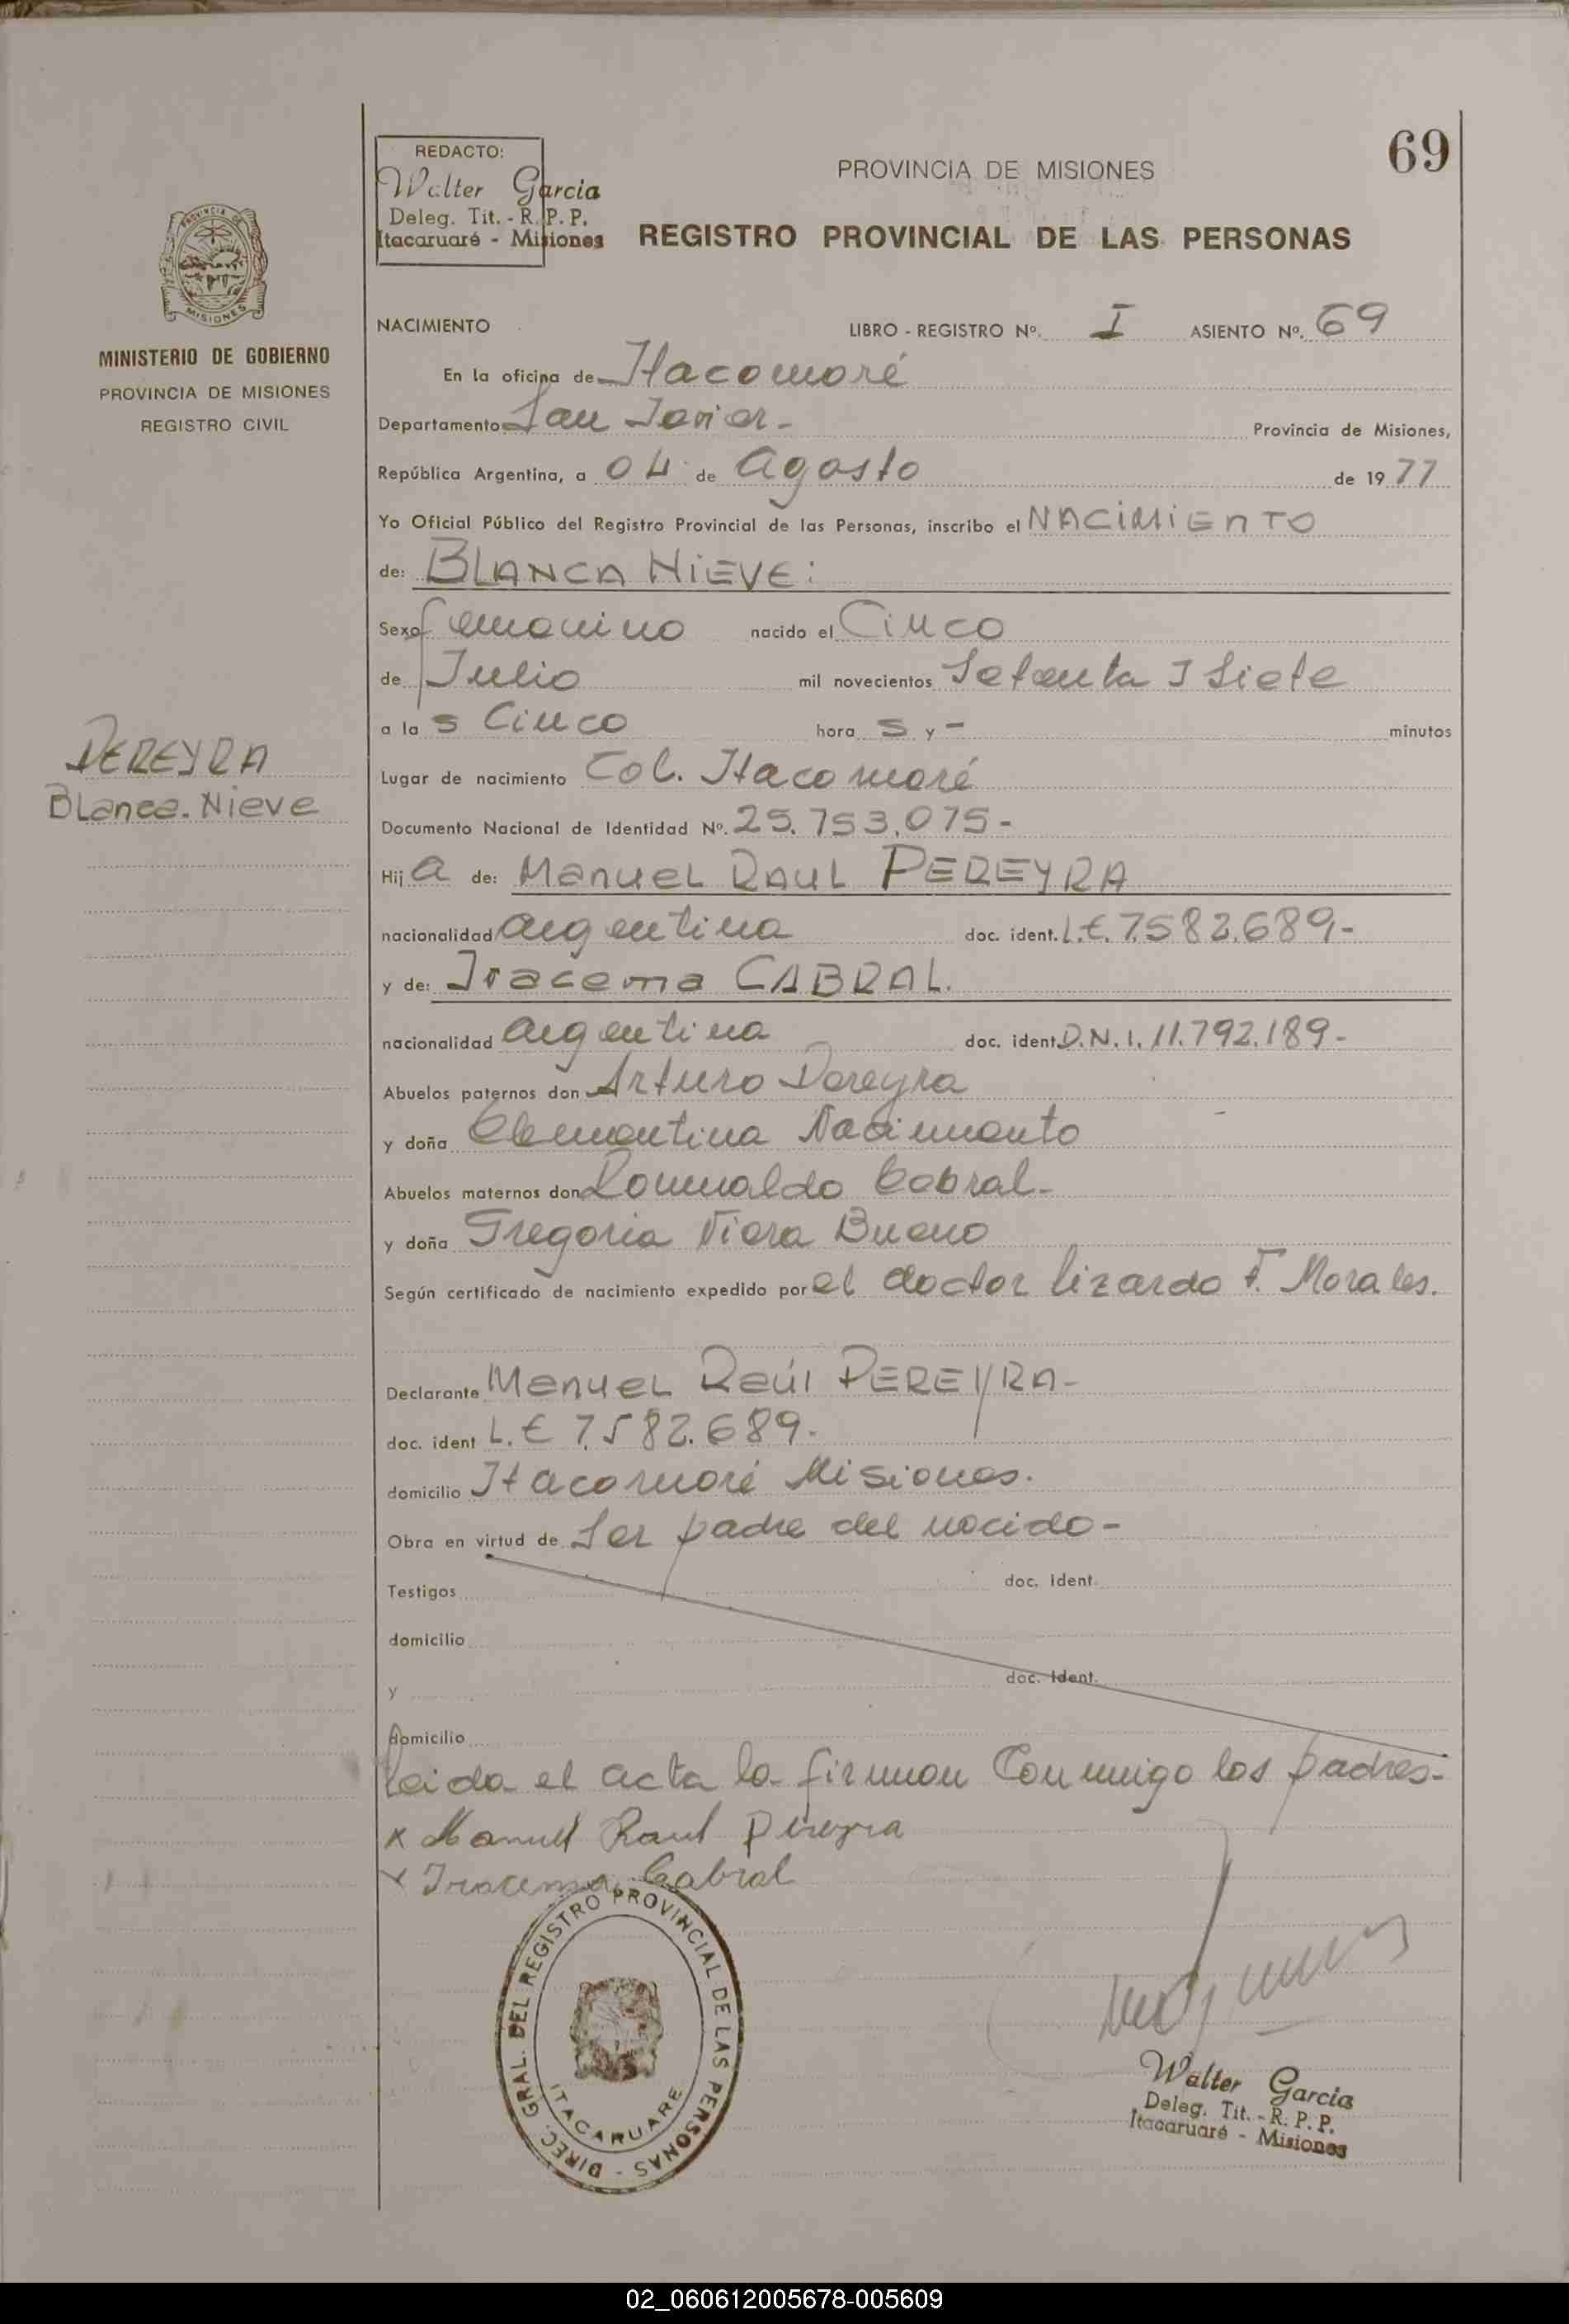 69
REDACTO:
Walter Garcia
Deleg. Tit. - R. P. P.
Itacaruaré - Misiones
PROVINCIA DE MISIONES
REGISTRO PROVINCIAL DE LAS PERSONAS
PROVINCIA DE
MISIONES
MINISTERIO DE GOBIERNO
PROVINCIA DE MISIONES
REGISTRO CIVIL
PEREYRA
Blanca. Nieve
NACIMIENTO LIBRO - REGISTRO Nº. I ASIENTO Nº. 69
En la oficina de Itacaruaré
Departamento San Javier - Provincia de Misiones,
República Argentina, a 04 de Agosto de 1977
Yo Oficial Público del Registro Provincial de las Personas, inscribo el NACIMIENTO
de: BLANCA NIEVE:
Sexo femenino nacido el Cinco
de Julio mil novecientos Setenta I Siete
a la s Cinco hora s y - minutos
Lugar de nacimiento Col. Itacaruaré
Documento Nacional de Identidad Nº. 25.753.075-
Hij a de: Manuel RAUL PEREYRA
nacionalidad argentina doc. ident. L.E. 7.582.689-
y de: Iracema CABRAL.
nacionalidad argentina doc. ident. D.N.I. 11.792.189-
Abuelos paternos don Arturo Pereyra
y doña Clementina Nacimento
Abuelos maternos don Romualdo Cabral-
y doña Gregoria Viera Bueno
Según certificado de nacimiento expedido por el doctor lizardo F. Morales.
Declarante Manuel Raúl PEREYRA-
doc. ident L.E 7.582.689-
domicilio Itacaruaré Misiones.
Obra en virtud de Ser padre del nacido-
Testigos doc. ident.
domicilio
y doc. ident.
domicilio
leida el acta la firman Conmigo los padres-
x Manuel Raul Pereyra
x Iracema Cabral
DIREC. GRAL. DEL REGISTRO PROVINCIAL DE LAS PERSONAS -
ITACARUARE
Walter Garcia
Deleg. Tit. - R. P. P.
Itacaruaré - Misiones
02_060612005678-005609